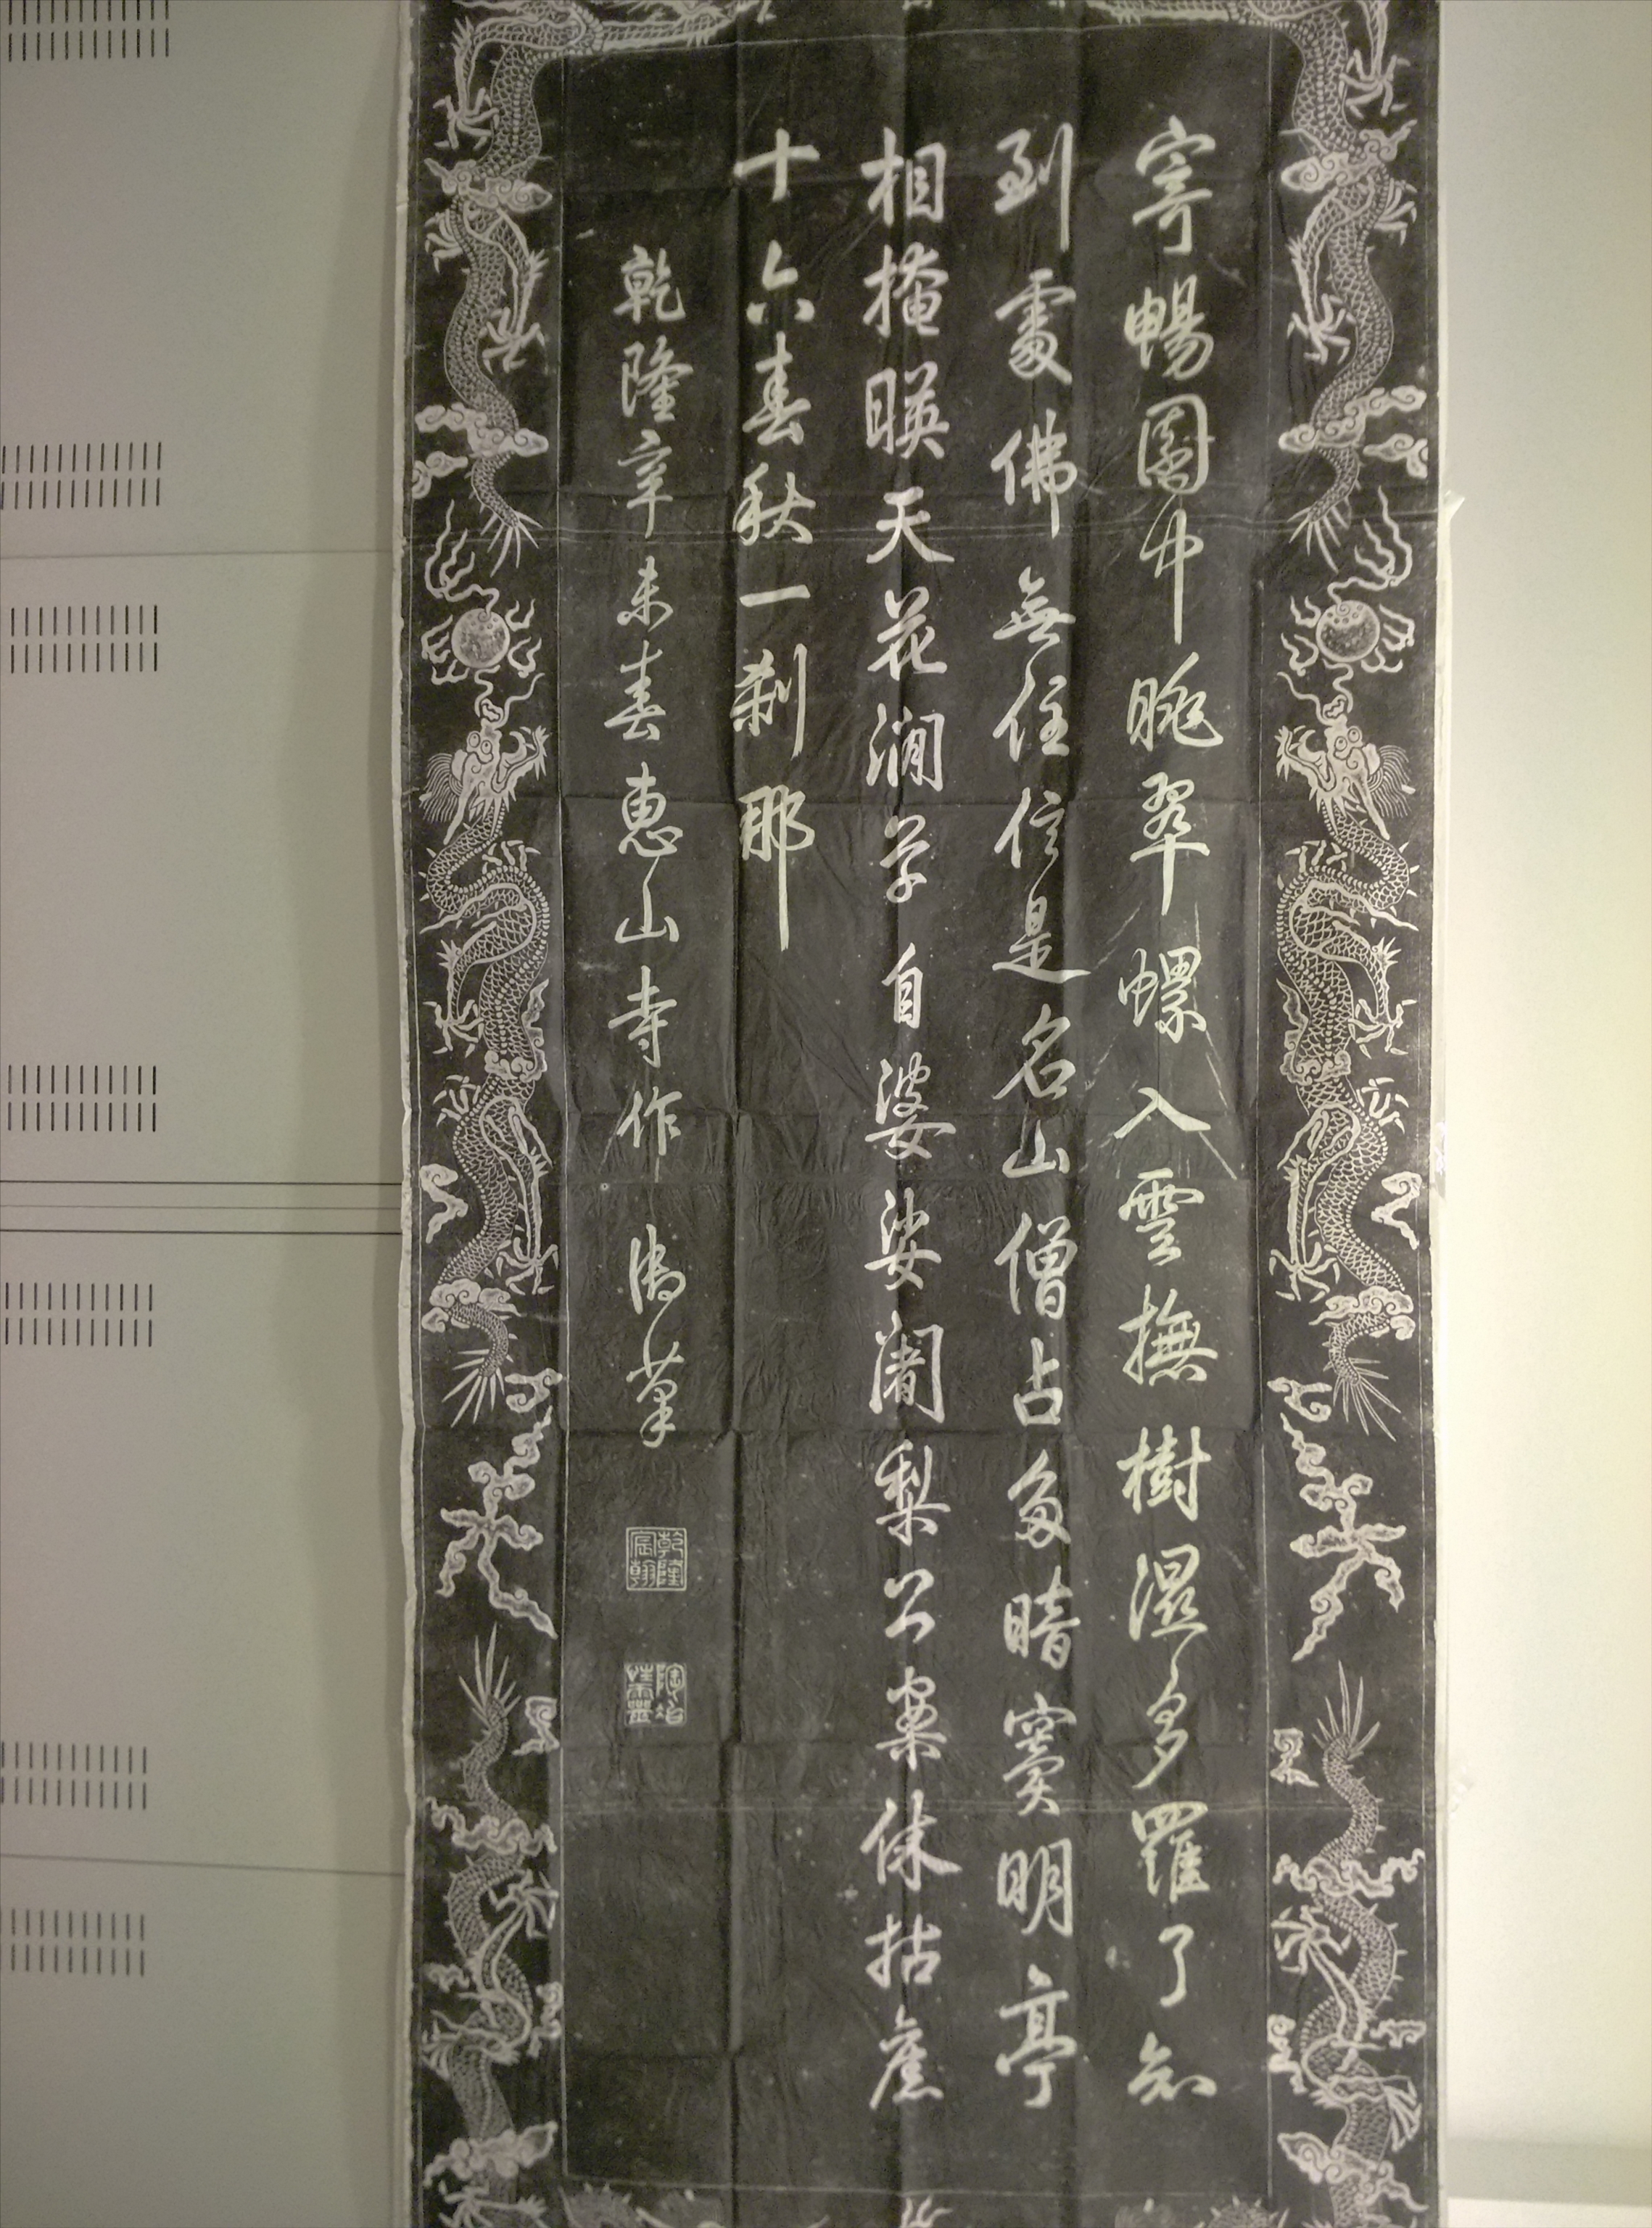 寄暢園中眺翠螺入雲撫樹濕多羅了知
到處佛無住信是名山僧占多暗竇明亭
相掩暎天花澗草自婆娑闍梨公案休拈舊
十六春秋一剎那
乾隆辛未春惠山寺作 御筆
乾隆宸翰
陶冶性靈